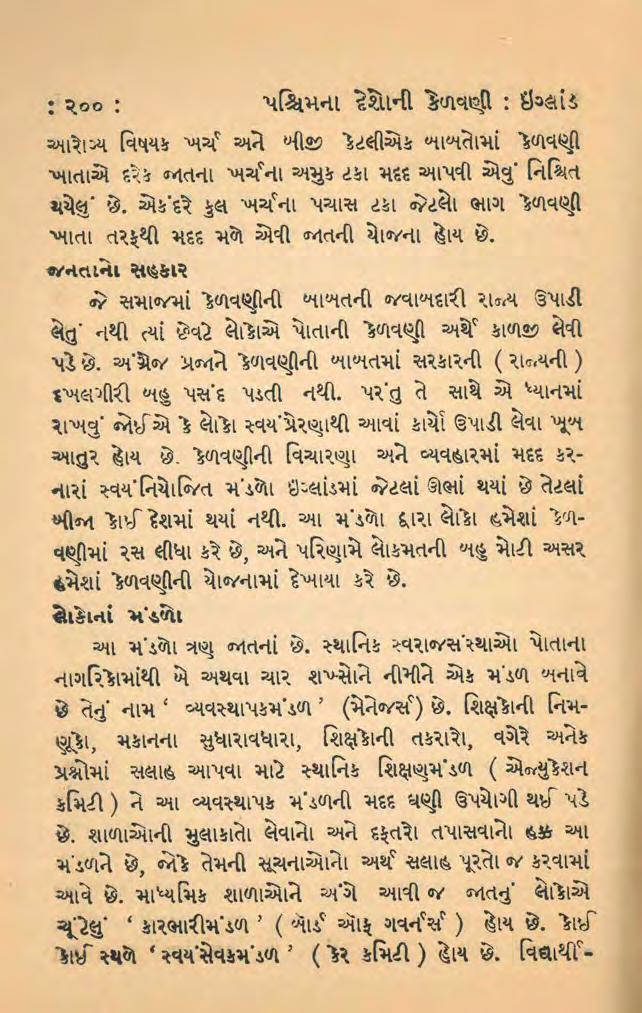 : ૨૦૦ : પશ્ચિમના દેશોની કેળવણી : ઇંગ્લાંડ
આરોગ્ય વિષયક ખર્ચ અને બીજી કેટલીએક બાબતોમાં કેળવણી
ખાતાએ દરેક જાતના ખર્ચના અમુક ટકા મદદ આપવી એવું નિશ્ચિત
થયેલું છે. એકંદરે કુલ ખર્ચના પચાસ ટકા જેટલો ભાગ કેળવણી
ખાતા તરફથી મદદ મળે એવી જાતની યોજના હોય છે.
જનતાનો સહકાર
જે સમાજમાં કેળવણીની બાબતની જવાબદારી રાજ્ય ઉપાડી
લેતું નથી ત્યાં છેવટે લોકોએ પોતાની કેળવણી અર્થે કાળજી લેવી
પડે છે. અંગ્રેજ પ્રજાને કેળવણીની બાબતમાં સરકારની ( રાજ્યની )
દખલગીરી બહુ પસંદ પડતી નથી. પરંતુ તે સાથે એ ધ્યાનમાં
રાખવું જોઈએ કે લોકો સ્વયંપ્રેરણાથી આવાં કાર્યો ઉપાડી લેવા ખૂબ
આતુર હોય છે. કેળવણીની વિચારણા અને વ્યવહારમાં મદદ કર-
નારાં સ્વયંનિયોજિત મંડળો ઇંગ્લાંડમાં જેટલાં ઊભાં થયાં છે તેટલાં
બીજા કોઈ દેશમાં થયાં નથી. આ મંડળો દ્વારા લોકો હમેશાં કેળ-
વણીમાં રસ લીધા કરે છે, અને પરિણામે લોકમતની બહુ મોટી અસર
હમેશાં કેળવણીની યોજનામાં દેખાયા કરે છે.
લોકોનાં મંડળો
આ મંડળો ત્રણ જાતનાં છે. સ્થાનિક સ્વરાજસંસ્થાઓ પોતાના
નાગરિકોમાંથી બે અથવા ચાર શખ્સોને નીમીને એક મંડળ બનાવે
છે તેનું નામ ‘ વ્યવસ્થાપકમંડળ ’ (મેનેજર્સ) છે. શિક્ષકોની નિમ-
ણૂંકો, મકાનના સુધારાવધારા, શિક્ષકોની તકરારો, વગેરે અનેક
પ્રશ્નોમાં સલાહ આપવા માટે સ્થાનિક શિક્ષણમંડળ ( એજ્યુકેશન
કમિટી ) ને આ વ્યવસ્થાપક મંડળની મદદ ઘણી ઉપયોગી થઈ પડે
છે. શાળાઓની મુલાકાતો લેવાનો અને દફતરો તપાસવાનો હક્ક આ
મંડળને છે, જોકે તેમની સૂચનાઓનો અર્થ સલાહ પૂરતો જ કરવામાં
આવે છે. માધ્યમિક શાળાઓને અંગે આવી જ જાતનું લોકોએ
ચૂંટેલું ‘ કારભારીમંડળ ’ ( બૉર્ડ ઑફ ગવર્નર્સ ) હોય છે. કોઈ
કોઈ સ્થળે ‘ સ્વયંસેવકમંડળ ’ ( કેર કમિટી ) હોય છે. વિદ્યાર્થી-